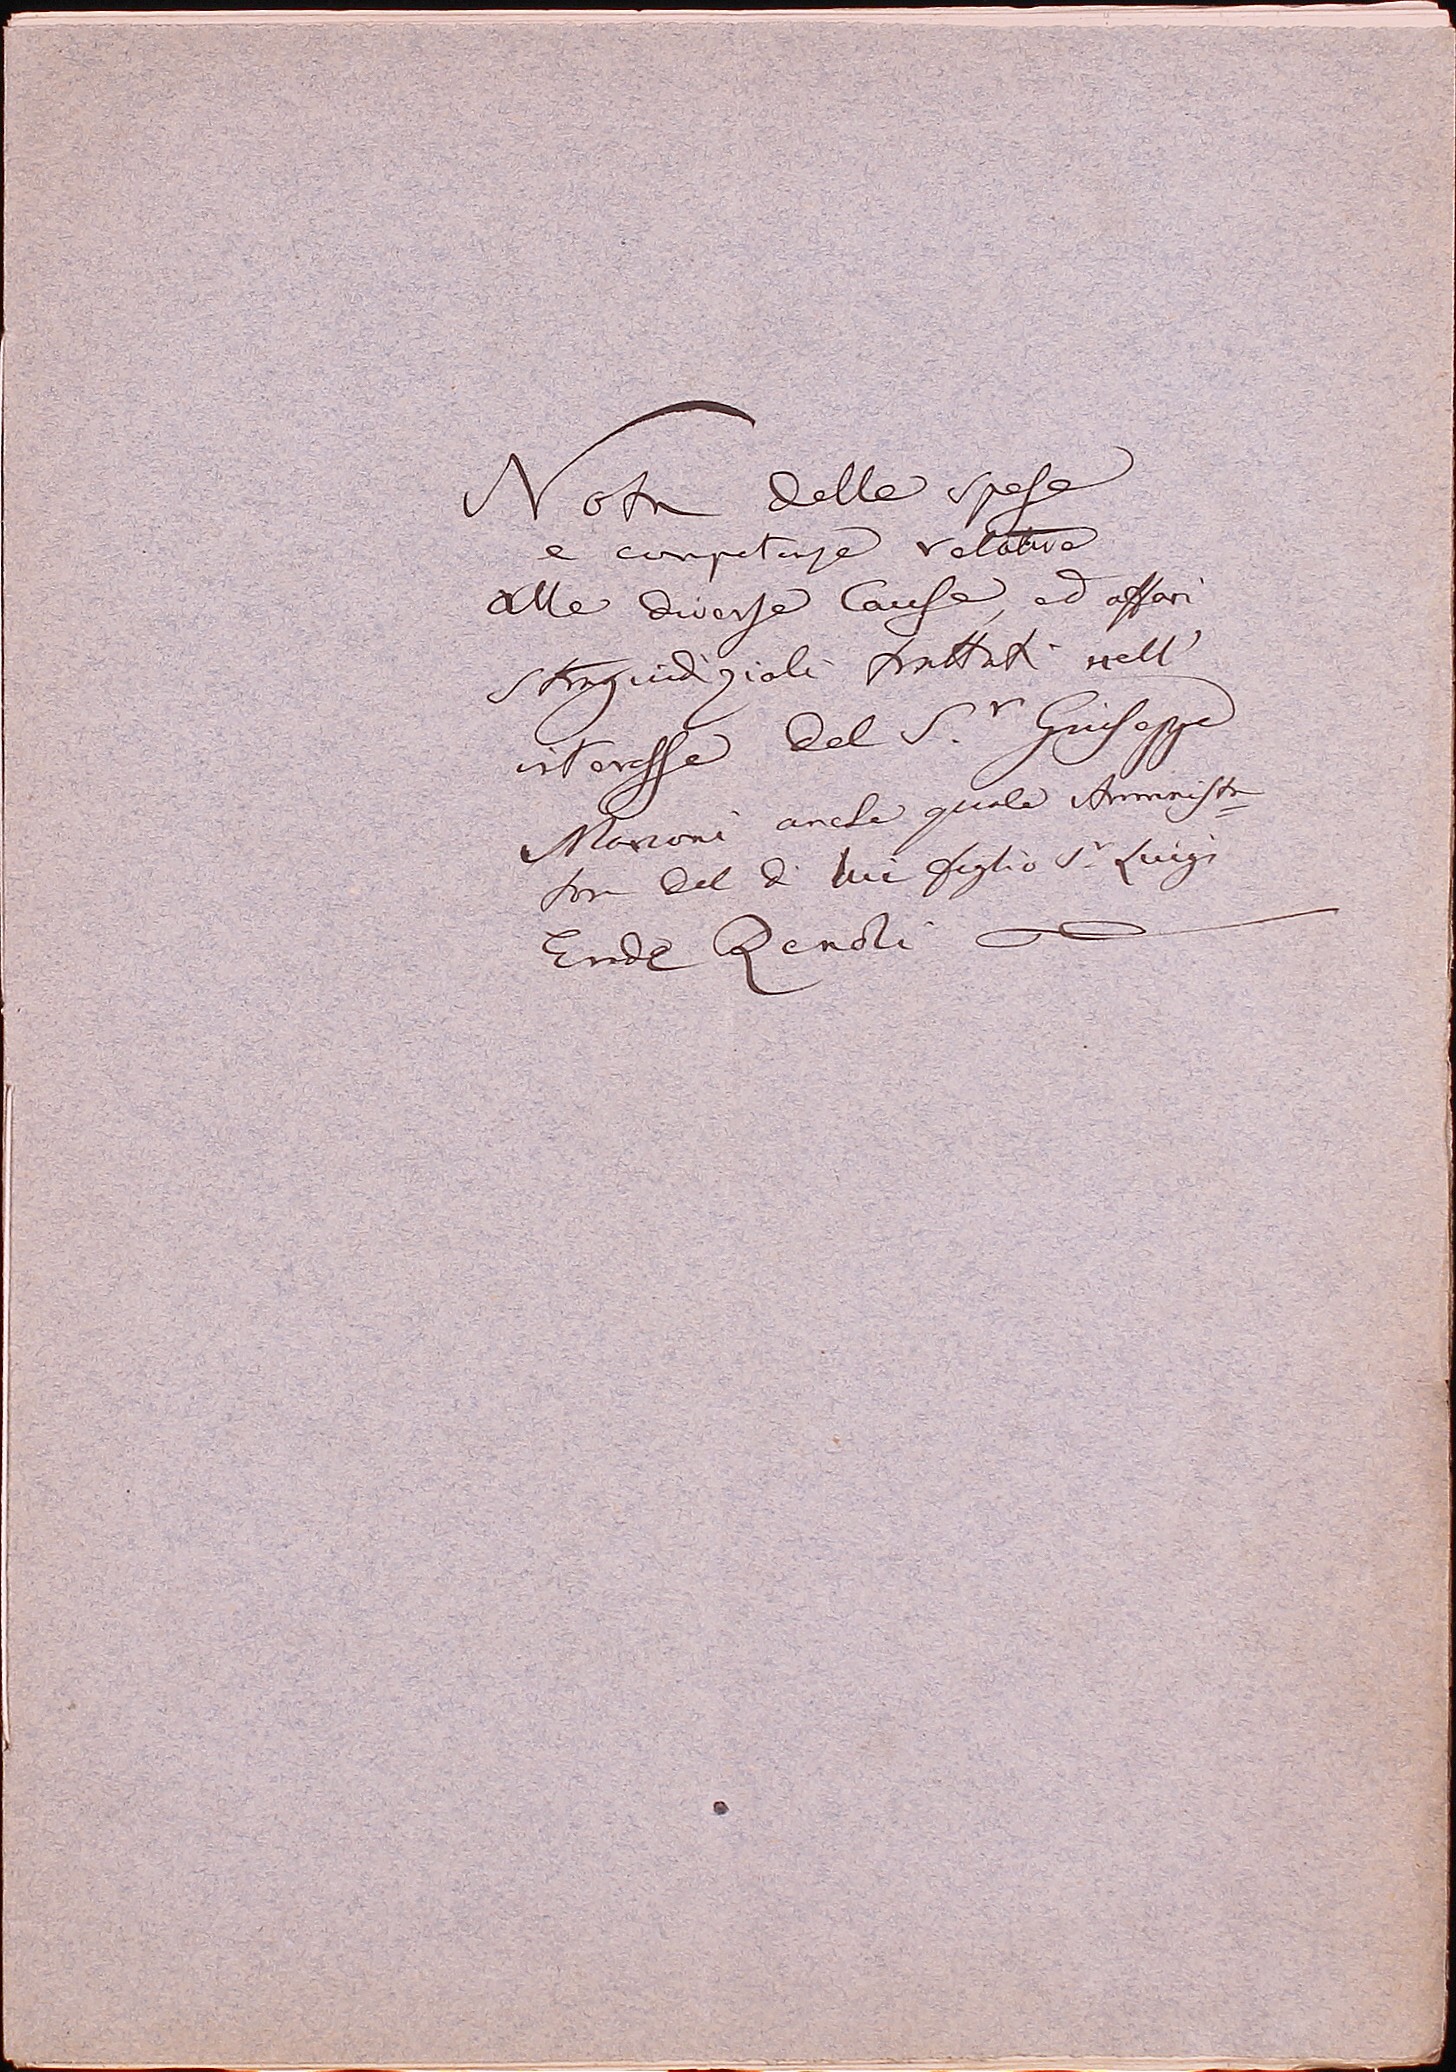 Nota delle spese
e competenze relative
alle diverse Cause, ed affari
stragiudiziali trattati nell'
interesse del S.r Giuseppe
Marconi anche quale Amministra=
tore del di lui figlio S.r Luigi
Erede Rendli